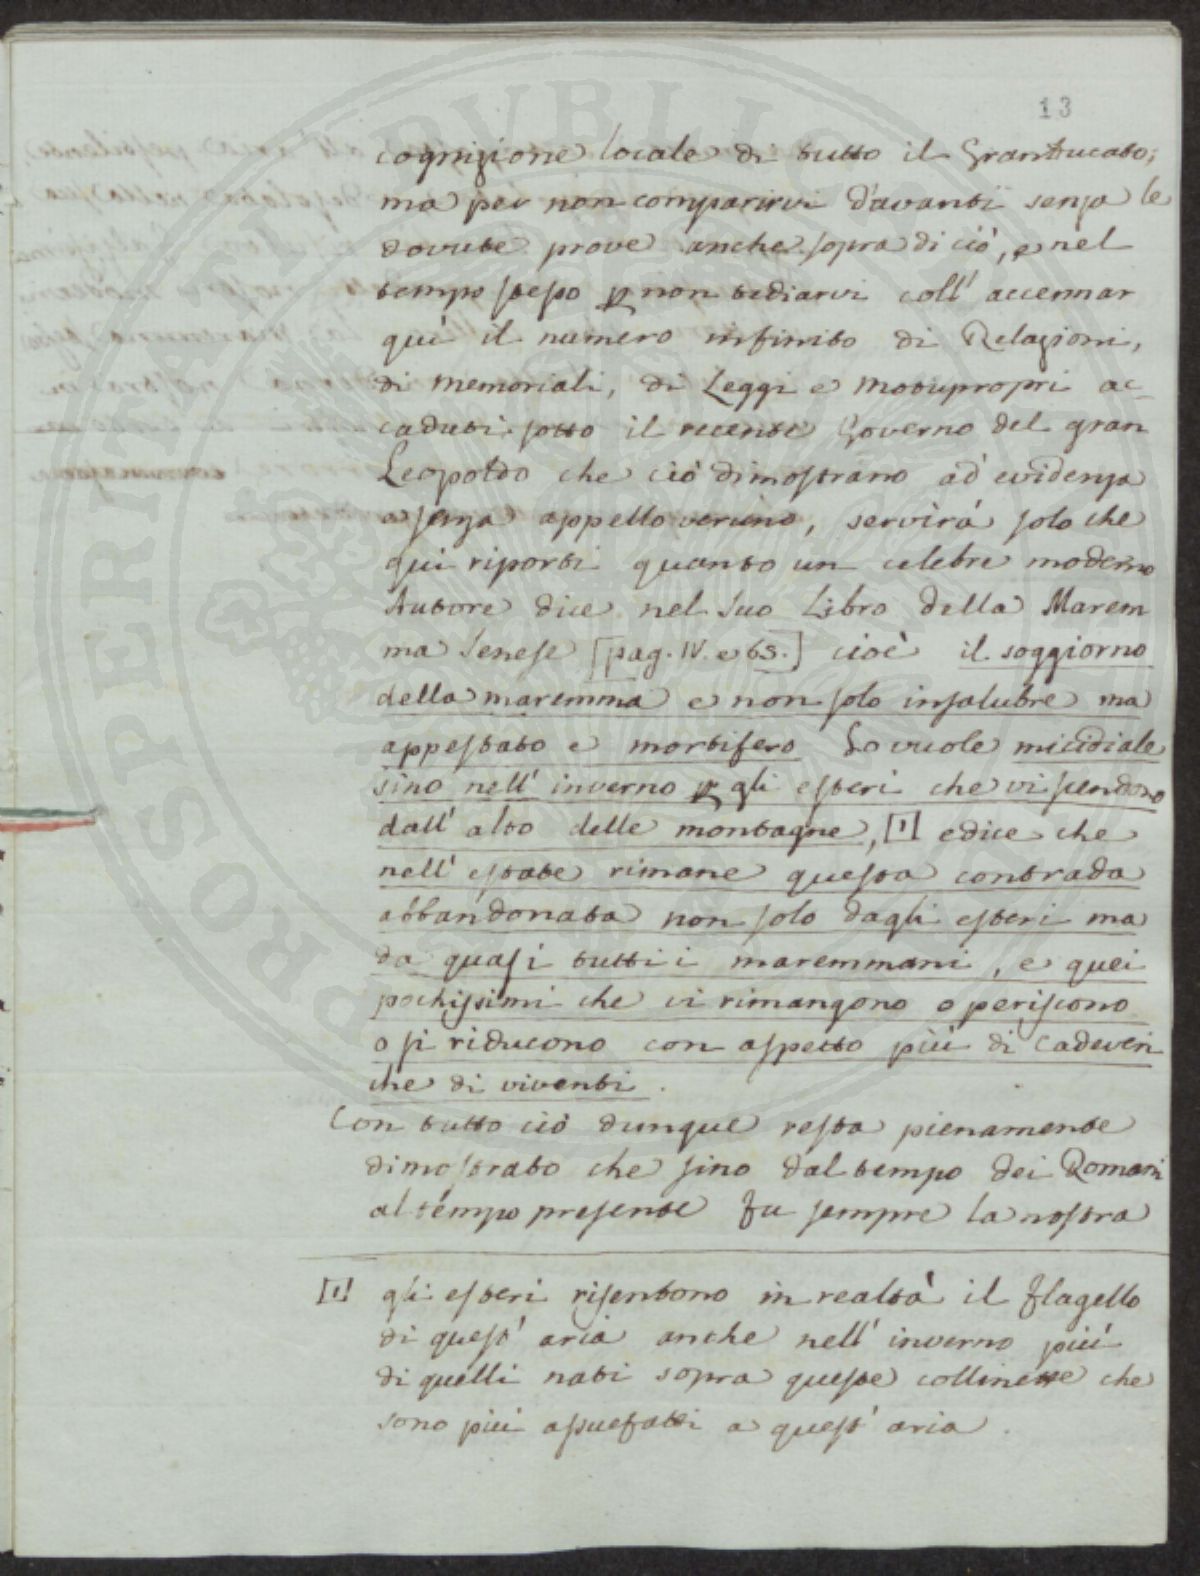 13
cognizione locale di tutto il GranDucato;
ma per non comparirvi d'avanti senza le
dovute prove anche sopra di ciò, e nel
tempo stesso p non tediarvi coll' accennar
qui il numero infinito di Relazioni,
di memoriali, di Leggi e Motupropri ac-
caduti sotto il recente Governo del gran
Leopoldo che ciò dimostrano ad evidenza
e senza appello veruno, servirà solo che
qui riporti quanto un celebre moderno
Autore dice nel suo Libro della Marem
ma Senese [pag. IV. e 63.] cioè il soggiorno
della maremma e non solo insalubre ma
appestato e mortifero Lo vuole micidiale
sino nell' inverno p gli esteri che vi scendono
dall' alto delle montagne, [1] e dice che
nell' estate rimane questa contrada
abbandonata non solo dagli esteri ma
da quasi tutti i maremmani, e quei
pochissimi che vi rimangono o periscono
o si riducono con aspetto più di cadeveri
che di viventi.
Con tutto ciò dunque resta pienamente
dimostrato che sino dal tempo dei Romani
al tempo presente fu sempre la nostra
[1] gli esteri risentono in realtà il flagello
di quest' aria anche nell' inverno più
di quelli nati sopra queste collinette che
sono più assuefatti a quest' aria.
PROSPERITATI PUBLICAE